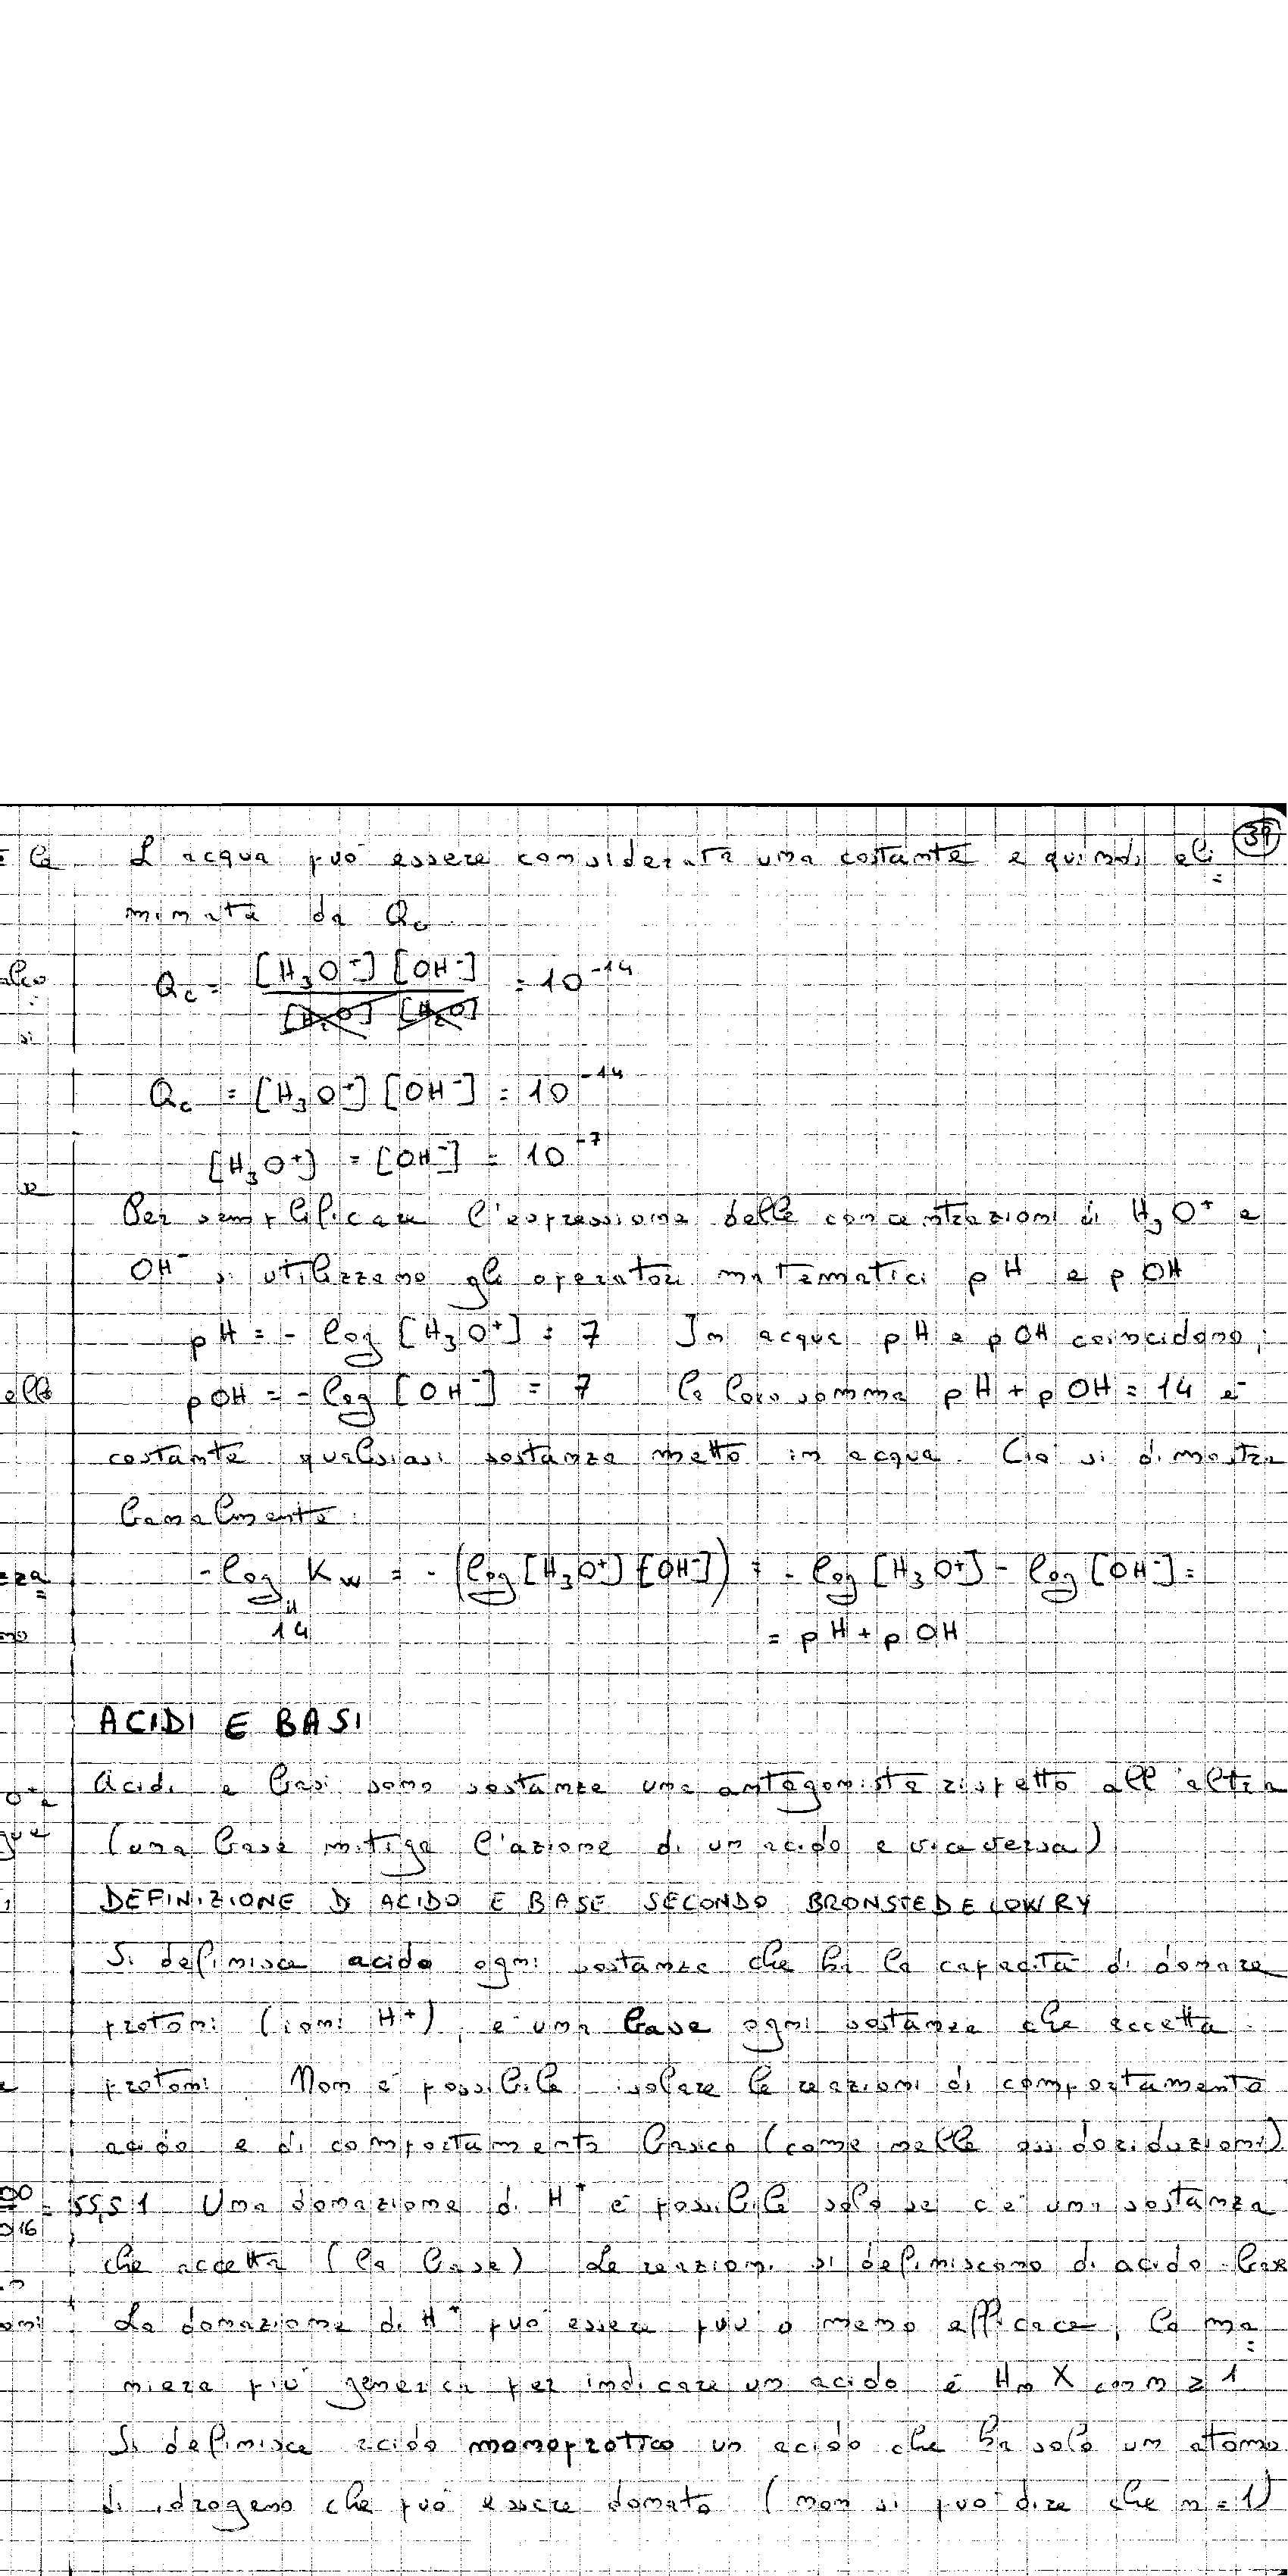 39
L'acqua può essere considerata una costante e quindi eli=
minata da Qc.
Qc = [H3O+] [OH-] / [H2O] [H2O] = 10^-14
Qc = [H3O+] [OH-] = 10^-14
[H3O+] = [OH-] = 10^-7
Per semplificare l'espressione delle concentrazioni di H3O+ e
OH- si utilizzano gli operatori matematici pH e pOH
pH = - log [H3O+] = 7 In acqua pH e pOH coincidono;
pOH = - log [OH-] = 7 la loro somma pH + pOH = 14 è
costante qualsiasi sostanza metto in acqua. Ciò si dimostra
banalmente:
- log Kw = - (log [H3O+] [OH-]) = - log [H3O+] - log [OH-] =
14 = pH + pOH
ACIDI E BASI
Acidi e basi sono sostanze una antagonista rispetto all'altra
(una base mitiga l'azione di un acido e viceversa)
DEFINIZIONE DI ACIDO E BASE SECONDO BRONSTED E LOWRY
Si definisce acido ogni sostanza che ha la capacità di donare
protoni (ioni H+), e una base ogni sostanza che accetta
protoni. Non è possibile isolare le reazioni di comportamento
acido e di comportamento basico (come nelle ossidoriduzioni)
= 55,51 Una donazione di H+ è possibile solo se c'è una sostanza
che accetta (la base). Le reazioni si definiscono di acido-base
La donazione di H+ può essere più o meno efficace; la ma=
niera più generica per indicare un acido è HnX con n ≥ 1
Si definisce acido monoprotico un acido che ha solo un atomo
di idrogeno che può essere donato (non si può dire che n = 1)